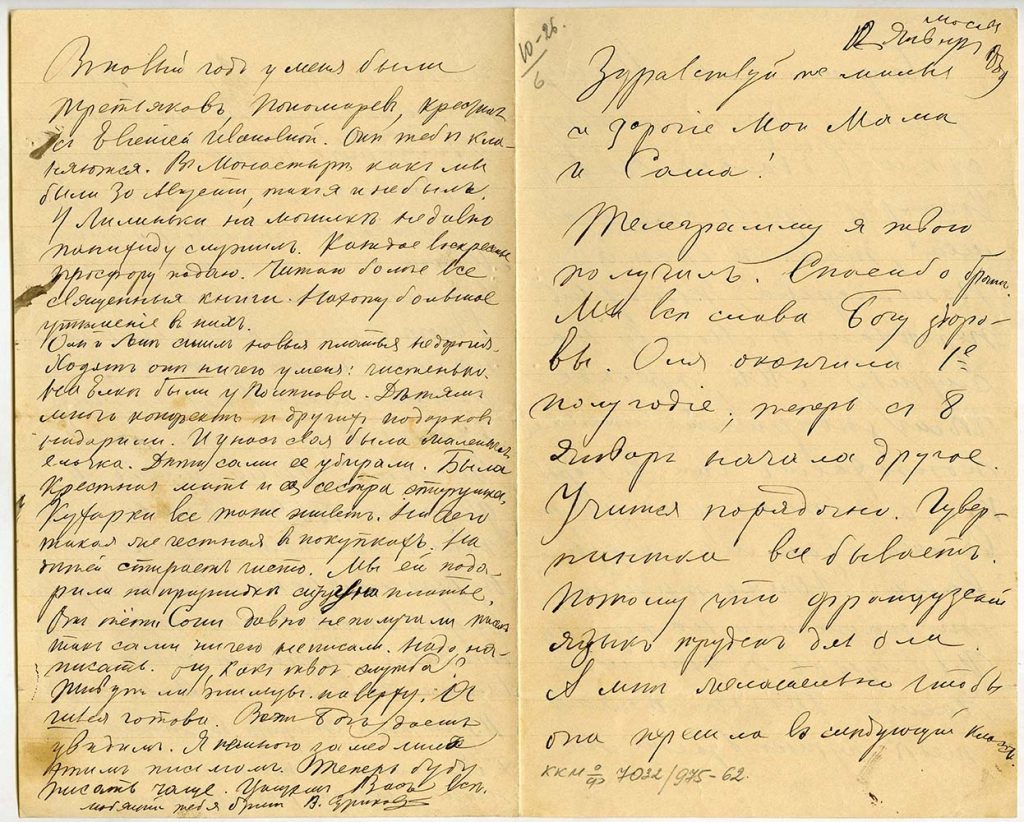 Москва
12 Января
Здравствуйте милые
и дорогие мои Мама
и Саша!
Телеграмму я твою
получилъ. Спасибо братъ.
Мы всѣ слава Богу здоро-
вы. Оля окончила 1е
полугодіе, теперь съ 8
Января начала другое.
Учится порядочно. Гувер-
нантка все бываетъ.
Потому что французскій
языкъ труденъ для Оли.
А мнѣ желательно чтобы
она перешла въ слѣдующій классъ.
ККМ о/ф 7022/975-62.
10-26.
6
Въ новый годъ у меня были
Третьяковъ, Пономаревъ, крестная
съ Евгеніей Ивановной. Они тебѣ кла-
няются. Въ Монастырѣ какъ мы
были 30 Августа, такъ я и не былъ.
У Лилиньки на могилкѣ недавно
панихиду служилъ. Каждое воскресенье
просфору подаю. Читаю болѣе все
священныя книги. Нахожу большое
утѣшеніе въ нихъ.
Олѣ и Ленѣ сшилъ новыя платья недорогія.
Ходятъ они ничего у меня: чистенько.
На Елкѣ были у
Дѣтямъ
много конфектъ и другихъ подарковъ
надарили. И у насъ своя была маленькая
елочка. Дѣти сами ее убирали. Была
крестная мать и ея сестра старушка.
Кухарка все таже живетъ. Ничего
такая же честная въ покупкахъ. На
дѣтей стираетъ чисто. Мы ей пода-
рили на праздники
платье.
Отъ тети Сони давно не получали писемъ
такъ сами ничего не писали. Надо на-
писать. Ну, какъ твоя служба?
Живутъ ли жильцы на верху?
готова. Вотъ Богъ дастъ
увидимъ. Я немного замедлилъ
этимъ письмомъ. Теперь буду
писать чаще. Цѣлуемъ Васъ всѣ.
любящій тебя братъ В. Суриковъ